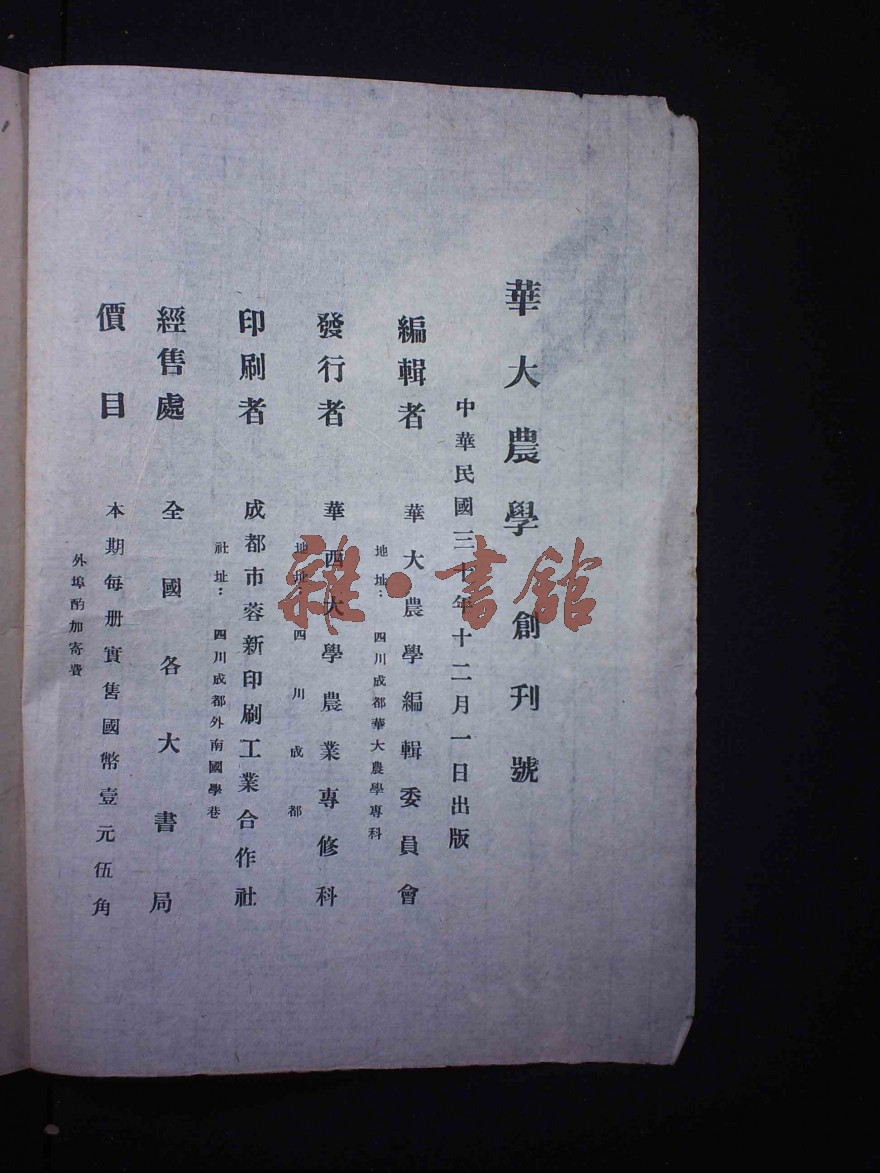 華大農學 創刊號
中華民國三十年十二月一日出版
編輯者 華大農學編輯委員會
地址：四川成都華大農學專科
發行者 華西大學農業專修科
地址：四川成都
印刷者 成都市蓉新印刷工業合作社
社址：四川成都外南國學巷
經售處 全國各大書局
價目 本期每册實售國幣壹元伍角
外埠酌加寄費
雜·書館